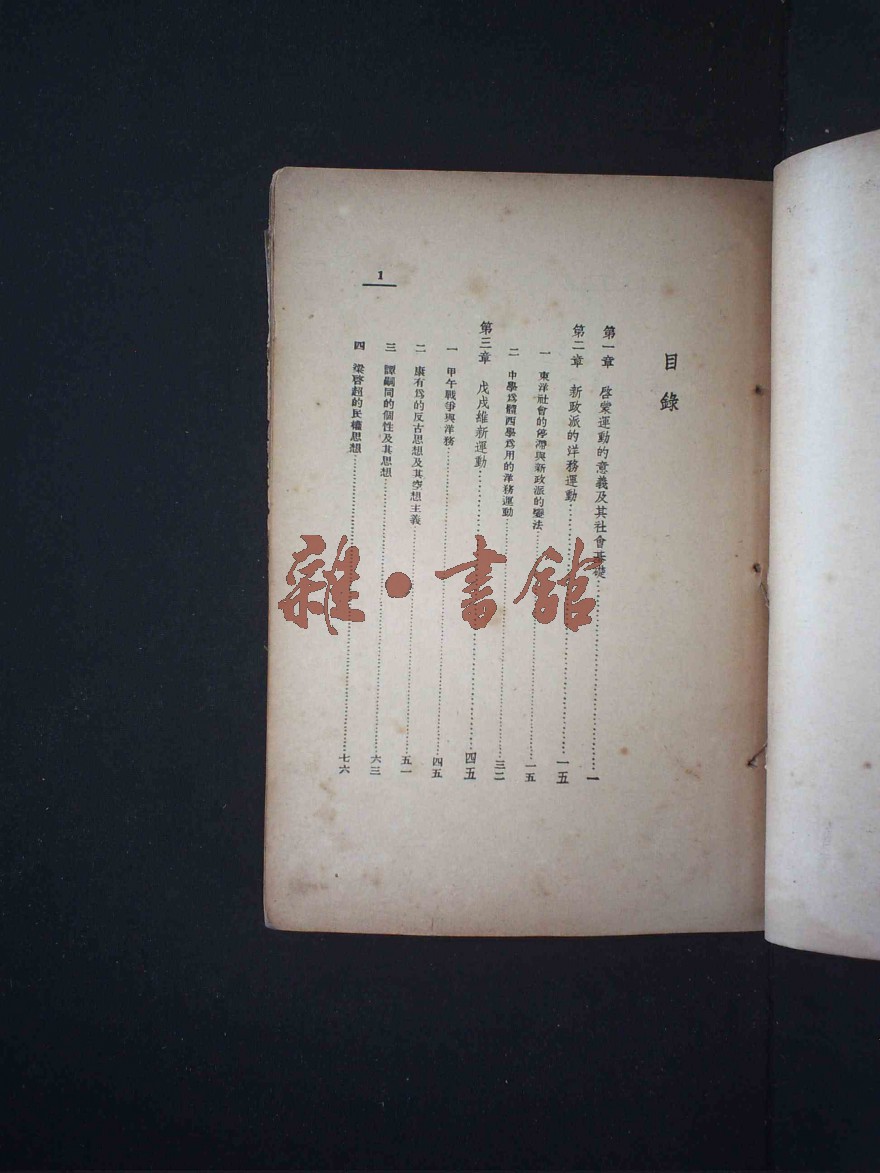 目錄
第一章 啓蒙運動的意義及其社會基礎……一
第二章 新政派的洋務運動……一五
一 東洋社會的停滯與新政派的變法……一五
二 中學爲體西學爲用的洋務運動……三二
第三章 戊戌維新運動……四五
一 甲午戰爭與洋務……四五
二 康有爲的反古思想及其空想主義……五一
三 譚嗣同的個性及其思想……六三
四 梁啓超的民權思想……七六
1
雜·書館